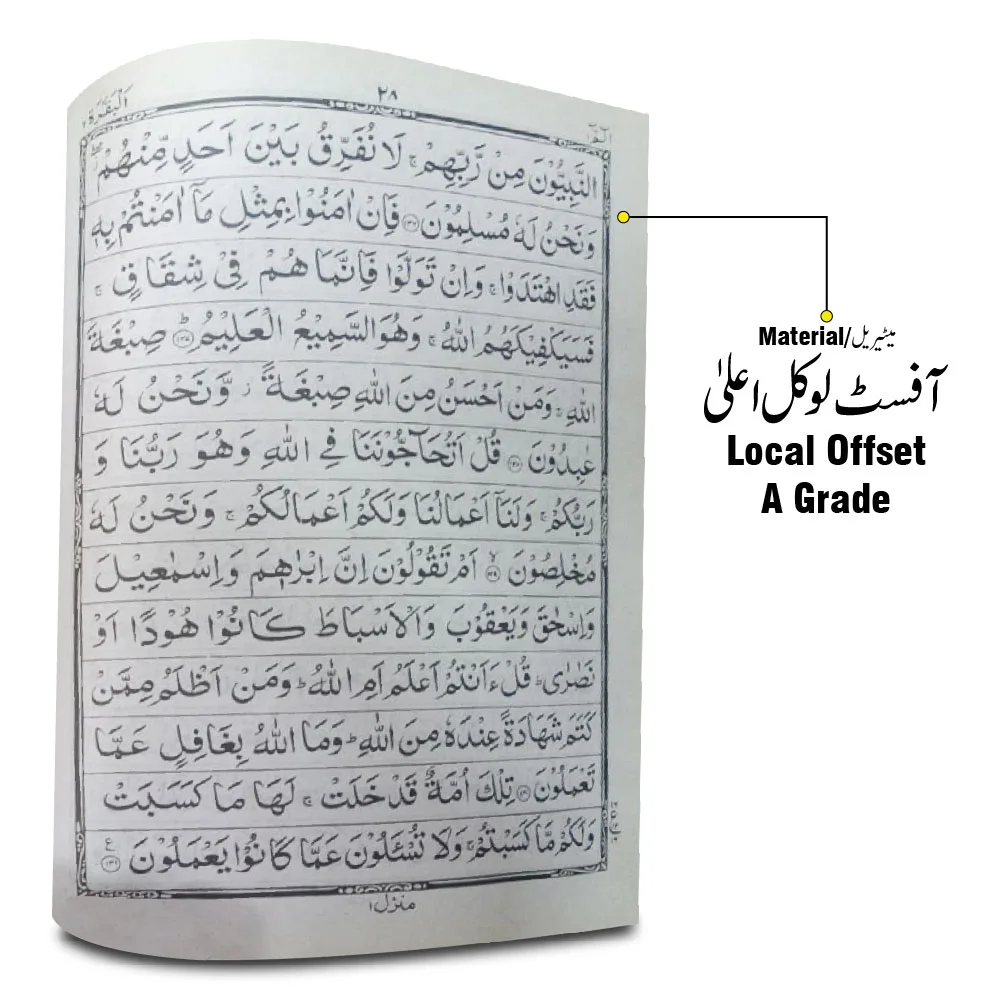 الٓمّٓ ۱
۲۸
اَلْبَقَرَة ۲
النَّبِيُّوْنَ مِنْ رَّبِّهِمْ ۚ لَا نُفَرِّقُ بَيْنَ اَحَدٍ مِّنْهُمْ ۖ
وَنَحْنُ لَهٗ مُسْلِمُوْنَ ﴿۱۳۶﴾ فَاِنْ اٰمَنُوْا بِمِثْلِ مَآ اٰمَنْتُمْ بِهٖ
فَقَدِ اهْتَدَوْا ۚ وَاِنْ تَوَلَّوْا فَاِنَّمَا هُمْ فِيْ شِقَاقٍ ۚ
فَسَيَكْفِيْكَهُمُ اللّٰهُ ۚ وَهُوَ السَّمِيْعُ الْعَلِيْمُ ﴿۱۳۷﴾ؕ صِبْغَةَ
اللّٰهِ ۚ وَمَنْ اَحْسَنُ مِنَ اللّٰهِ صِبْغَةً ز وَّنَحْنُ لَهٗ
عٰبِدُوْنَ ﴿۱۳۸﴾ قُلْ اَتُحَآجُّوْنَنَا فِي اللّٰهِ وَهُوَ رَبُّنَا وَ
رَبُّكُمْ ۚ وَلَنَآ اَعْمَالُنَا وَلَكُمْ اَعْمَالُكُمْ ۚ وَنَحْنُ لَهٗ
مُخْلِصُوْنَ ﴿۱۳۹﴾ۙ اَمْ تَقُوْلُوْنَ اِنَّ اِبْرٰهٖمَ وَاِسْمٰعِيْلَ
وَاِسْحٰقَ وَيَعْقُوْبَ وَالْاَسْبَاطَ كَانُوْا هُوْدًا اَوْ
نَصٰرٰى ؕ قُلْ ءَاَنْتُمْ اَعْلَمُ اَمِ اللّٰهُ ؕ وَمَنْ اَظْلَمُ مِمَّنْ
كَتَمَ شَهَادَةً عِنْدَهٗ مِنَ اللّٰهِ ؕ وَمَا اللّٰهُ بِغَافِلٍ عَمَّا
تَعْمَلُوْنَ ﴿۱۴۰﴾ تِلْكَ اُمَّةٌ قَدْ خَلَتْ ۚ لَهَا مَا كَسَبَتْ
وَلَكُمْ مَّا كَسَبْتُمْ ۚ وَلَا تُسْـَٔلُوْنَ عَمَّا كَانُوْا يَعْمَلُوْنَ ﴿۱۴۱﴾ ع
منزل ۱
Material/میٹیریل
آفسٹ لوکل اعلیٰ
Local Offset
A Grade